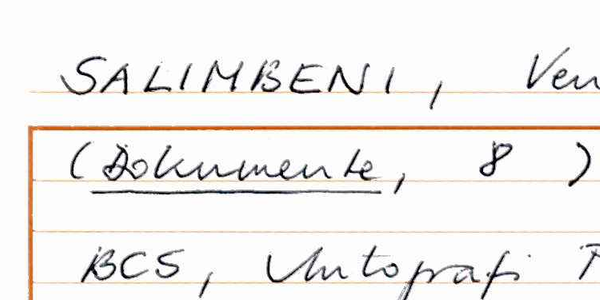 SALIMBENI, Ven
(Dokumente, 8)
BCS, Autografi P